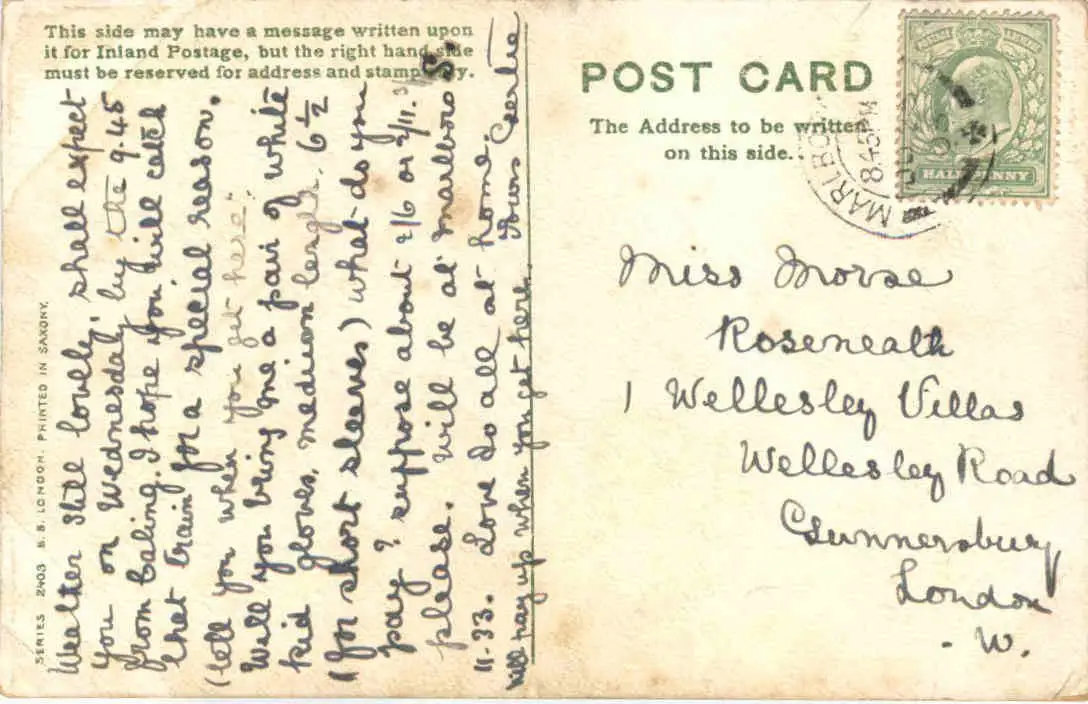 This side may have a message written upon
it for Inland Postage, but the right hand side
must be reserved for address and stamp only.
POST CARD
The Address to be written
on this side.
HALFPENNY
MARLBO
8.45PM
Weather still lovely, shall expect
you on Wednesday by the 9.45
from Ealing. I hope you will catch
that train for a special reason.
(tell you when you get here".
Will you bring me a pair of white
kid gloves, medium length, 6½
(for short sleeves) what do you
pay? suppose about 2/6 or 2/11.3
please. Will be at Marlboro
11-33. Love to all at home.
Will pay up when you get here.
Yours
S.
Miss Morse
Roseneath
1 Wellesley Villas
Wellesley Road
Gunnersbury
London
- W.
SERIES 2403 B.B. LONDON. PRINTED IN SAXONY.